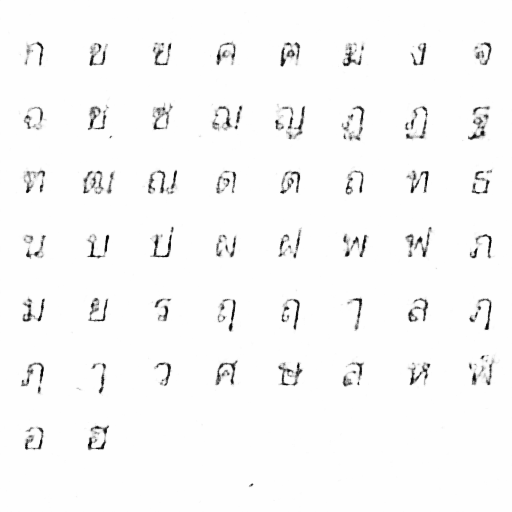 ก ข ฃ ค ฅ ฆ ง จ
ฉ ช ซ ฌ ญ ฎ ฏ ฐ
ฑ ฒ ณ ด ต ถ ท ธ
น บ ป ผ ฝ พ ฟ ภ
ม ย ร ฤ ฤ ๅ ล ภ
ภ ๅ ว ศ ษ ส ห ฬ
อ ฮ